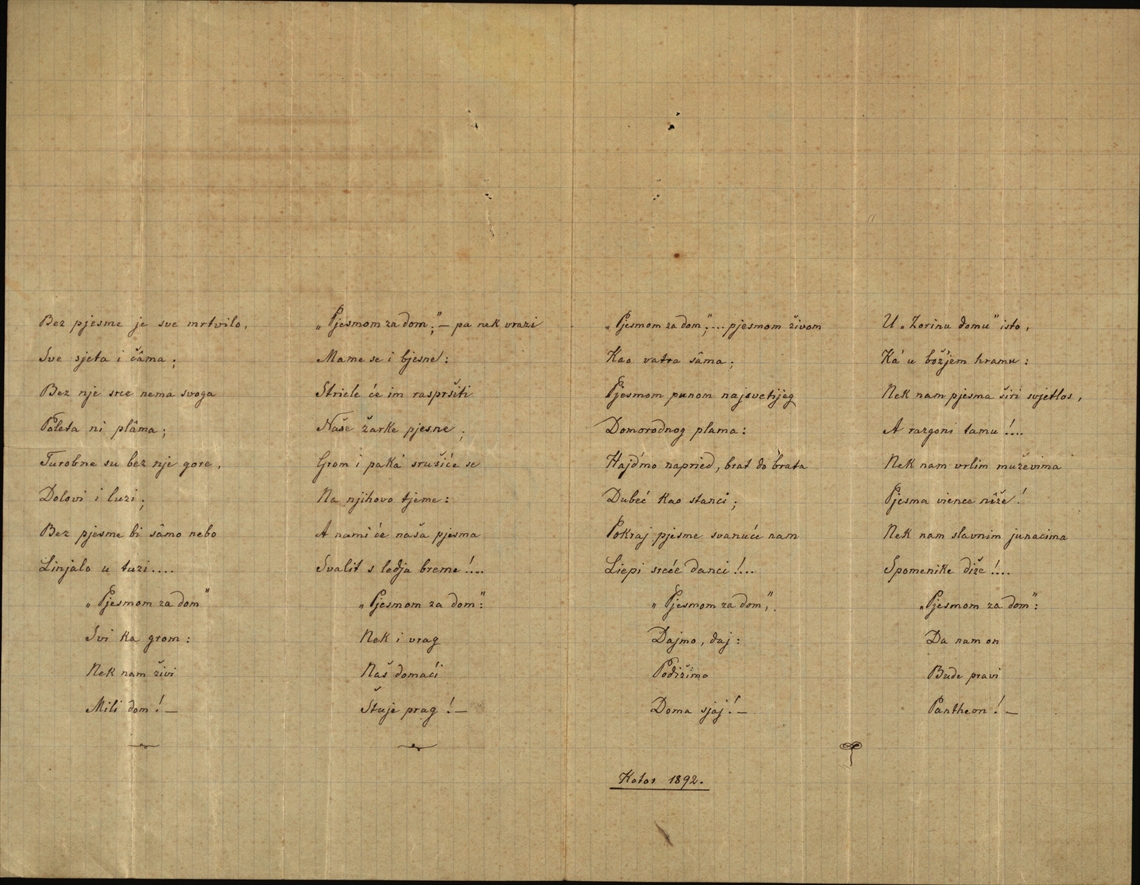 Bez pjesme je sve mrtvilo,
Sve sjeta i čâma;
Bez nje srce nema svoga
Poleta ni plâma;
Turobne su bez nje gore,
Dolovi i luzi;
Bez pjesme bi sâmo nebo
Linjalo u tuzi....
„Pjesmom za dom"
Svi ka grom:
Nek nam živi
Mili dom! —
„Pjesmom za dom;" — pa nek vrazi
Mame se i bjesne:
Striele će im raspršiti
Naše žarke pjesne;
Grom i pakâ srušiće se
Na njihovo tjeme:
A nami će naša pjesma
Svalit s ledja breme!...
„Pjesmom za dom":
Nek i vrag
Naš domaći
Štuje prag! —
„Pjesmom za dom;"... pjesmom živom
Kao vatra sâma;
Pjesmom punom najsvetijeg
Domorodnog plama:
Hajd'mo napried, brat do brata
Dubeć kao stanci;
Pokraj pjesme svanuće nam
Liepi srećć danci!...
„Pjesmom za dom",
Dajmo, daj:
Podižimo
Doma sjaj! —
U „Zorinu domu" isto,
Ká u božjem hramu:
Nek nam pjesma širi svjetlos,
A razgoni tamu!...
Nek nam vrlim muževima
Pjesma vience niže!
Nek nam slavnim junacima
Spomenike diže!...
„Pjesmom za dom":
Da nam on
Bude pravi
Pantheon! —
Kotor 1892.